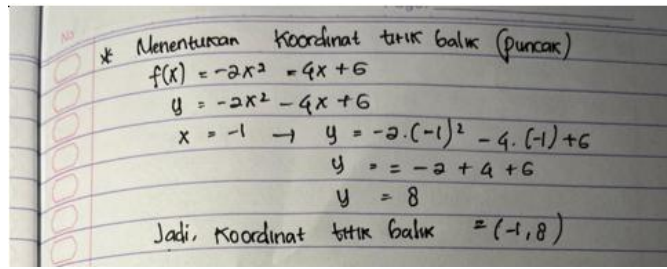 No
* Menentukan Koordinat titik balik (puncak)
f(x) = -2x² - 4x + 6
y = -2x² - 4x + 6
x = -1 → y = -2.(-1)² - 4.(-1) + 6
y = = -2 + 4 + 6
y = 8
Jadi, Koordinat titik balik = (-1, 8)